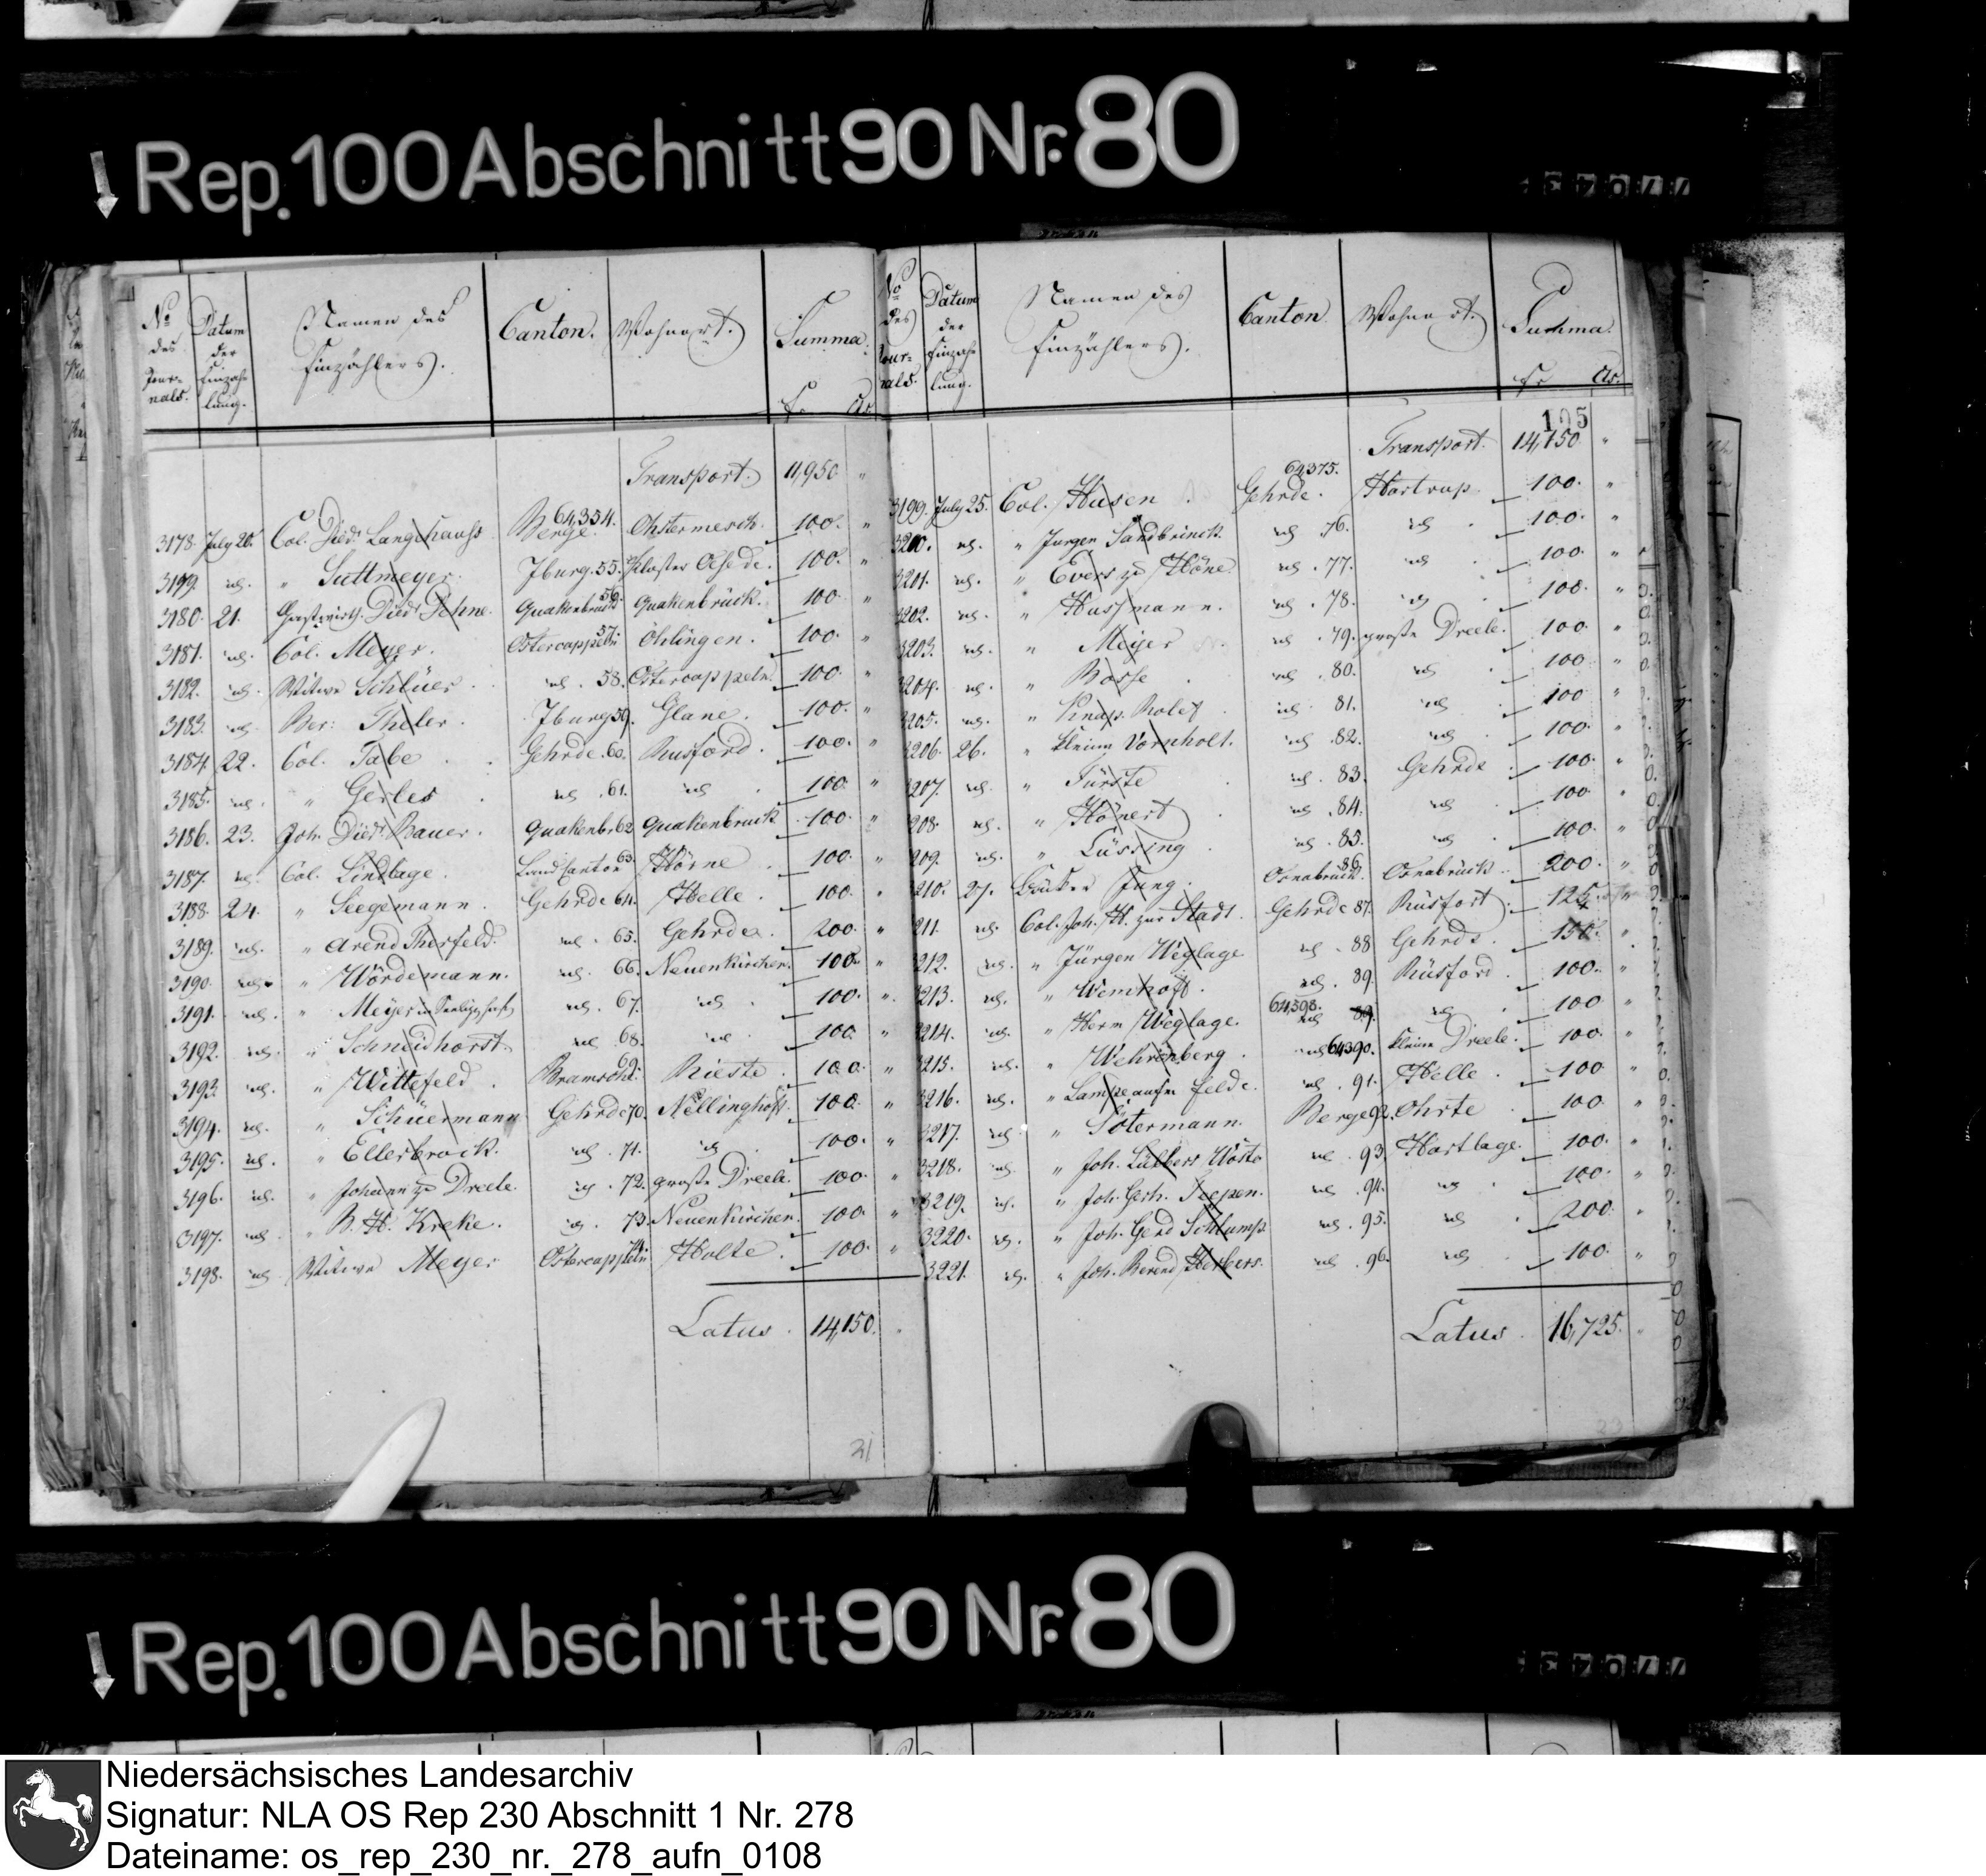 Rep. 100 Abschnitt 90 Nr. 80
No des Journals. Datum der Einzahlung. Namen des Einzählers. Canton. Wohnort. Summa. fr. Cts.
Transport. 11,950 "
3178. July 20. Col. Died. Langhauss Berge. 64,354. Ohstermesch. 100. "
3179. id. " Suttmeyer. Iburg. 55. Kloster Oesede. 100. "
3180. 21. Gastwirth Died. Dehne. Quakenbrück 56. Quakenbrück. 100. "
3181. id. Col. Meyer. Ostercappeln 57. Öhlingen. 100. "
3182. id. Witwe Schlüer. id. 58. Ostercappeln. 100. "
3183. id. Theler. Iburg 59. Glane. 100. "
3184. 22. Col. Tabe Gehrde. 60. Rusford. 100. "
3185. id. " Gerles id. 61. id. 100. "
3186. 23. Joh. Died. Bauer. Quakenbr. 62. Quakenbrück 100. "
3187. id. Col. Lindlage. Land Canton 63. Hörne 100. "
3188. 24. " Seegemann. Gehrde 64. Helle. 100. "
3189. id. " Arend Therfeld. id. 65. Gehrde. 200. "
3190. id. " Wördemann. id. 66. Neuenkirchen. 100. "
3191. id. " Meyer id. 67. id. 100. "
3192. id. " Schneidhorst id. 68. id. 100. "
3193. id. " Wittefeld. Bramsche. 69. Rieste. 100. "
3194. id. " Schüermann Gehrde 70. Nellinghoft. 100. "
3195. id. " Ellerbrock. id. 71. id. 100. "
3196. id. " Johann zu Dreele. id. 72. große Dreele. 100. "
3197. id. " B. H. Kreke. id. 73. Neuenkirchen. 100. "
3198. id. Witwe Meyer Ostercappeln 74. Holte. 100. "
Latus. 14,150. "
31
No des Journals. Datum der Einzahlung. Namen des Einzählers. Canton. Wohnort. Summa. fr. Cts.
105
Transport. 14,150. "
3199. July 25. Col. Husen Gehrde. 64,375. Hastrup. 100. "
3200. id. " Jurgen Sandbrinck. id. 76. id. 100. "
3201. id. " Evers zu Höne. id. 77. id. 100. "
3202. id. " Husmann. id. 78. id. 100. "
3203. id. " Meyer id. 79. große Dreele. 100. "
3204. id. " Bosse id. 80. id. 100. "
3205. id. " Knap. Rolef id. 81. id. 100. "
3206. 26. " kleine Vornholt. id. 82. id. 100. "
3207. id. " Fürste id. 83. Gehrde 100. "
208. id. " Hönert id. 84. id. 100. "
209. id. " Lüssing id. 85. id. 100. "
210. 27. Jung. Osnabrück. 86. Osnabrück. 200. "
211. id. Col. Joh. H. zur Stadt. Gehrde 87. Rüsfort. 125. "
212. id. " Jürgen Weglage id. 88 Gehrde. 150. "
3213. id. " Wemhoff. id. 89. Rüsford. 100. "
3214. id. " Herm Weglage. 64,398. id. 89. id. 100. "
3215. id. " Wehrenberg. id. 64390. kleine Dreele. 100. "
3216. id. " Lampe aufm felde. id. 91. Helle. 100. "
3217. id. " Sötermann. Berge 92. Ohrte 100. "
3218. id. " Joh. Lübbers Wöste id. 93. Hartlage. 100. "
3219. id. " Joh. Gerh. Tegen. id. 94. id. 100. "
3220. id. " Joh. Gerd Schlump. id. 95. id. 200. "
3221. id. " Joh. Berend Herbers. id. 96. id. 100. "
Latus. 16,725. "
Rep. 100 Abschnitt 90 Nr. 80
Niedersächsisches Landesarchiv
Signatur: NLA OS Rep 230 Abschnitt 1 Nr. 278
Dateiname: os_rep_230_nr._278_aufn_0108